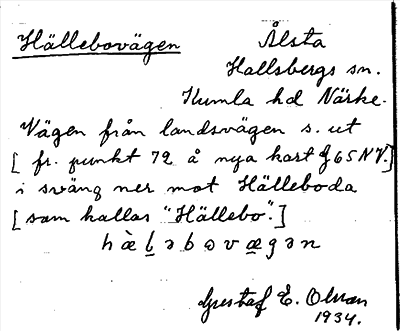 Hällebovägen Ålsta
Hallsbergs sn.
Kumla hd Närke.
Vägen från landsvägen s. ut
[fr. punkt 72 å nya kart 65 NV.]
i sväng ner mot Hälleboda
[som kallas "Hällebo".]
Gustaf E. Olsson
1934.